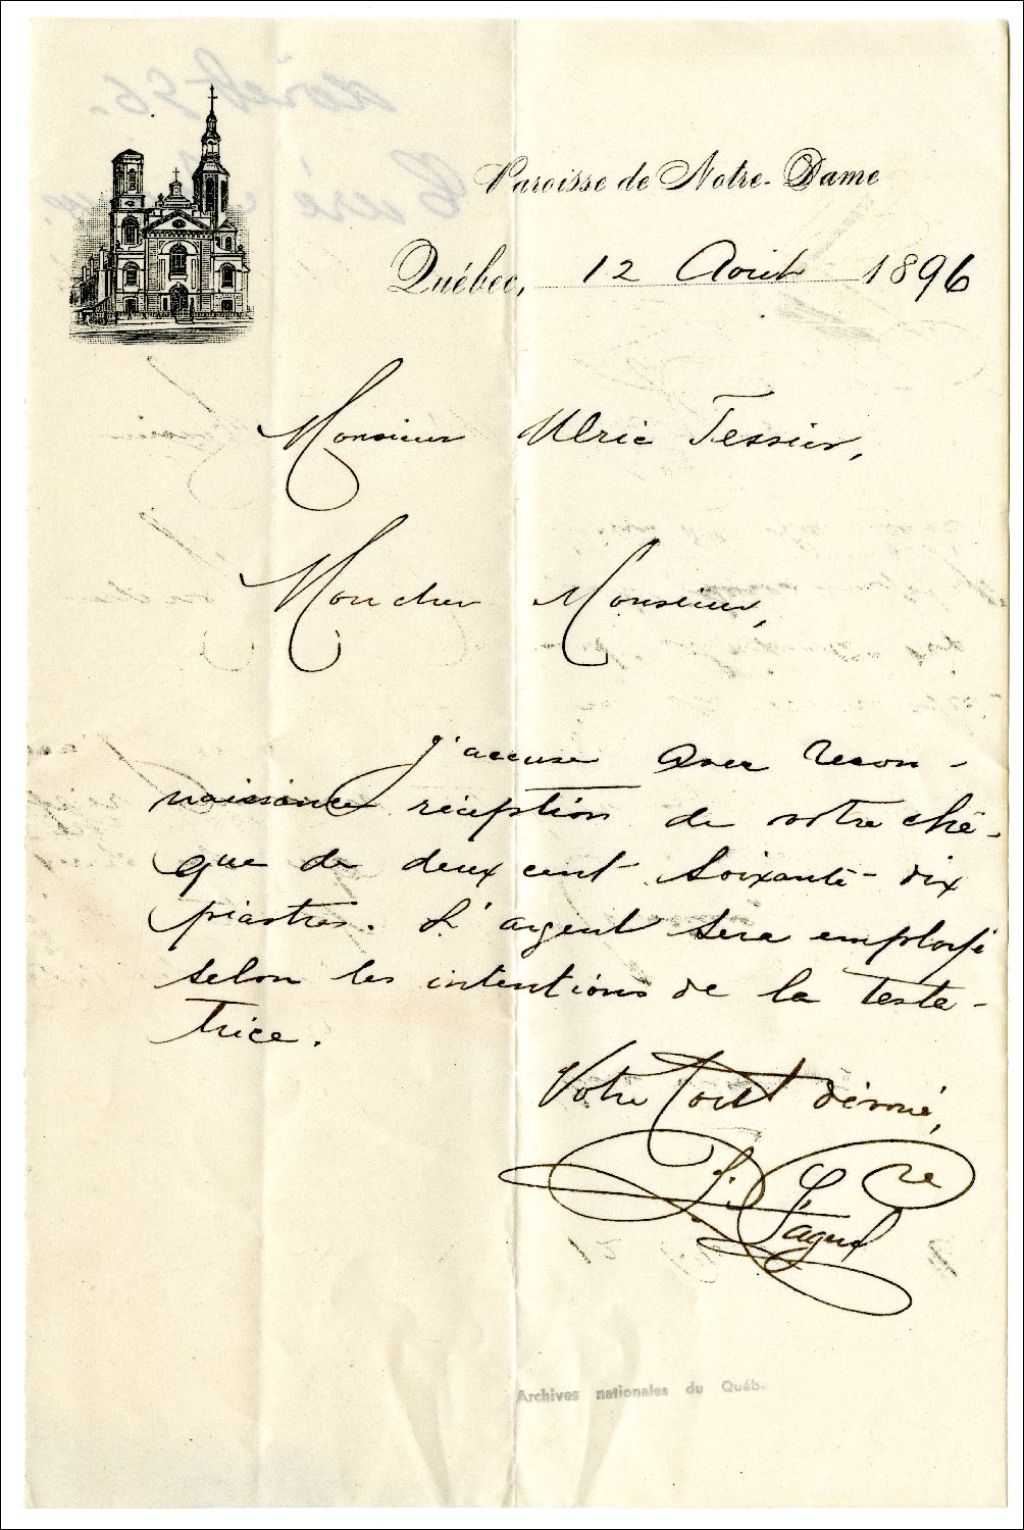 Paroisse de Notre-Dame
Québec, 12 Août 1896
Monsieur Ulric Tessier,
Mon cher Monsieur,
J'accuse avec recon-
naissance réception de votre chè-
que de deux cent soixante-dix
piastres. L'argent sera employé
selon les intentions de la testa-
trice.
Votre tout dévoué,
Faguy
Archives nationales du Québ